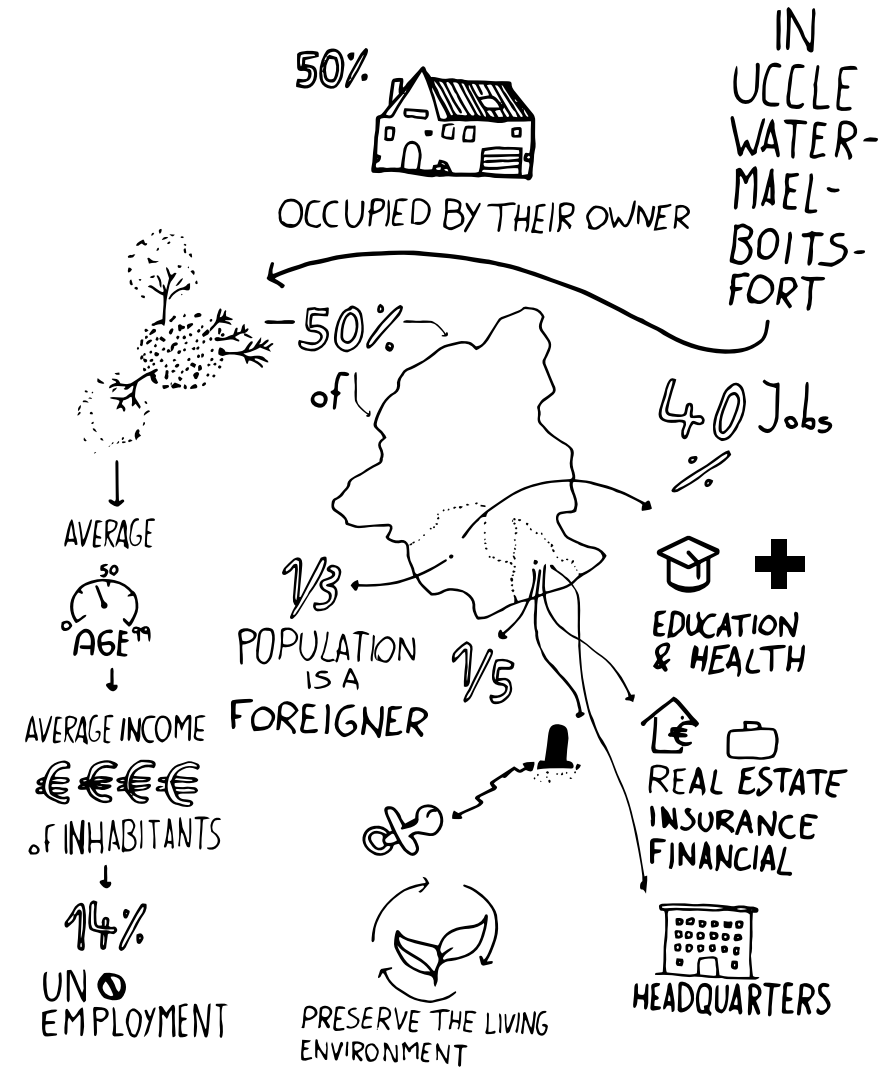 IN
UCCLE
WATER-
MAEL-
BOITS-
FORT
50%
OCCUPIED BY THEIR OWNER
50%
of
40 Jobs
%
AVERAGE
50
0 99
AGE
AVERAGE INCOME
€ € € €
of INHABITANTS
14%
UN
EMPLOYMENT
1/3
POPULATION
IS A
FOREIGNER
1/5
EDUCATION
& HEALTH
€
REAL ESTATE
INSURANCE
FINANCIAL
HEADQUARTERS
PRESERVE THE LIVING
ENVIRONMENT